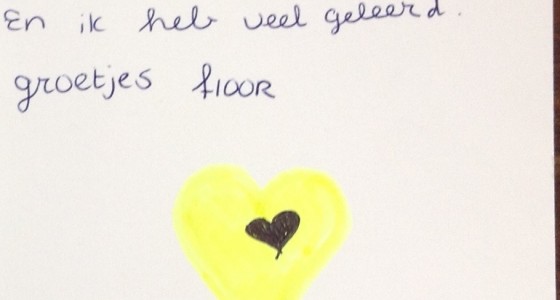 En ik heb veel geleerd.
groetjes floor